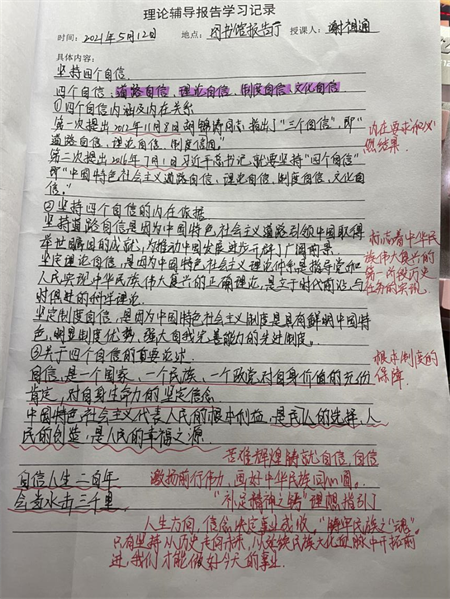 理论辅导报告学习记录
时间：2021年5月12日 地点：图书馆报告厅 授课人：谢祖通
具体内容：
坚持四个自信
四个自信：道路自信、理论自信、制度自信、文化自信
①四个自信内涵及内在关系
第一次提出2012年11月8日胡锦涛同志，指出了"三个自信"，即"
道路自信、理论自信、制度自信。"
第二次提出2016年7月1日习近平总书记，就要坚持"四个自信"
即"中国特色社会主义道路自信、理论自信、制度自信、文化自
信。"
内在要求和必
然结果
②坚持四个自信的内在依据
坚持道路自信，是因为中国特色社会主义道路引领中国取得
举世瞩目的成就，为推动中国发展进步开辟了广阔前景
坚定理论自信，是因为中国特色社会主义理论体系是指导党和
人民实现中华民族伟大复兴的正确理论，是立于时代前沿、与
时俱进的科学理论。
标志着中华民
族伟大复兴的
第一阶段历史
任务的实现
坚定制度自信，是因为中国特色社会主义制度是具有鲜明中国特
色、明显制度优势、强大自我完善能力的先进制度。
③关于四个自信的重要论述
根本制度的
保障
自信，是一个国家、一个民族、一个政党对自身价值的充分
肯定，对自身生命力的坚定信念
中国特色社会主义代表人民的根本利益，是人民的选择，人
民的创造，是人民的幸福之源
苦难辉煌铸就自信，自信
自信人生二百年
会当水击三千里
激扬前行伟力，面对中华民族
"补足精神之钙"理想指引
人生方向，信念决定事业成败，"民族之魂"
只有坚持从历史走向未来，从延续民族文化血脉中开拓前
进，我们才能做好今天的事业。